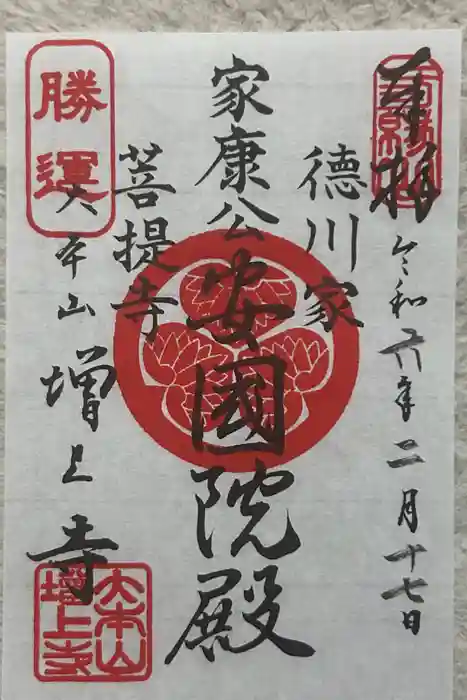 奉拝
令和六年二月十七日
徳川家
家康公
安國院殿
菩提寺
勝運
大本山
増上寺
大本山
増上寺